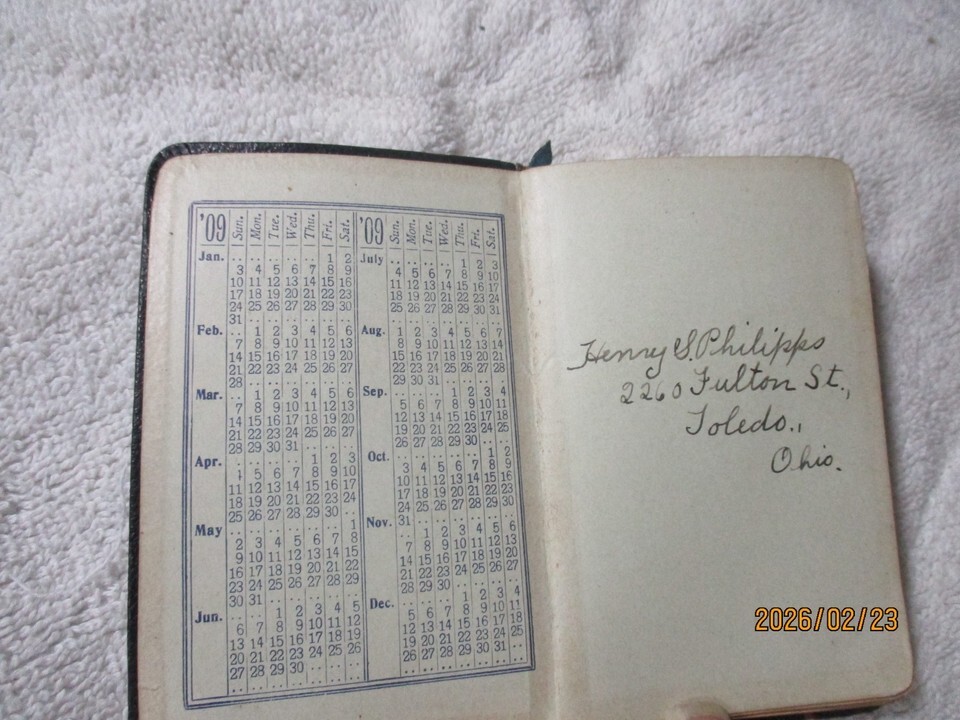 '09 Sun. Mon. Tue. Wed. Thu. Fri. Sat.
Jan. .. .. .. .. .. 1 2
3 4 5 6 7 8 9
10 11 12 13 14 15 16
17 18 19 20 21 22 23
24 25 26 27 28 29 30
31 .. .. .. .. .. ..
Feb. .. 1 2 3 4 5 6
7 8 9 10 11 12 13
14 15 16 17 18 19 20
21 22 23 24 25 26 27
28 .. .. .. .. .. ..
Mar. .. 1 2 3 4 5 6
7 8 9 10 11 12 13
14 15 16 17 18 19 20
21 22 23 24 25 26 27
28 29 30 31 .. .. ..
Apr. .. .. .. .. 1 2 3
4 5 6 7 8 9 10
11 12 13 14 15 16 17
18 19 20 21 22 23 24
25 26 27 28 29 30 ..
May .. .. .. .. .. .. 1
2 3 4 5 6 7 8
9 10 11 12 13 14 15
16 17 18 19 20 21 22
23 24 25 26 27 28 29
30 31 .. .. .. .. ..
Jun. .. .. 1 2 3 4 5
6 7 8 9 10 11 12
13 14 15 16 17 18 19
20 21 22 23 24 25 26
27 28 29 30 .. .. ..
.. .. .. .. .. .. ..
'09 Sun. Mon. Tue. Wed. Thu. Fri. Sat.
July .. .. .. .. 1 2 3
4 5 6 7 8 9 10
11 12 13 14 15 16 17
18 19 20 21 22 23 24
25 26 27 28 29 30 31
.. .. .. .. .. .. ..
Aug. 1 2 3 4 5 6 7
8 9 10 11 12 13 14
15 16 17 18 19 20 21
22 23 24 25 26 27 28
29 30 31 .. .. .. ..
Sep. .. .. .. 1 2 3 4
5 6 7 8 9 10 11
12 13 14 15 16 17 18
19 20 21 22 23 24 25
26 27 28 29 30 .. ..
Oct. .. .. .. .. .. 1 2
3 4 5 6 7 8 9
10 11 12 13 14 15 16
17 18 19 20 21 22 23
24 25 26 27 28 29 30
31 .. .. .. .. .. ..
Nov. .. 1 2 3 4 5 6
7 8 9 10 11 12 13
14 15 16 17 18 19 20
21 22 23 24 25 26 27
28 29 30 .. .. .. ..
Dec. .. .. .. 1 2 3 4
5 6 7 8 9 10 11
12 13 14 15 16 17 18
19 20 21 22 23 24 25
26 27 28 29 30 31 ..
.. .. .. .. .. .. ..
Henry S. Philipps
2260 Fulton St.,
Toledo.,
Ohio.
2026/02/23